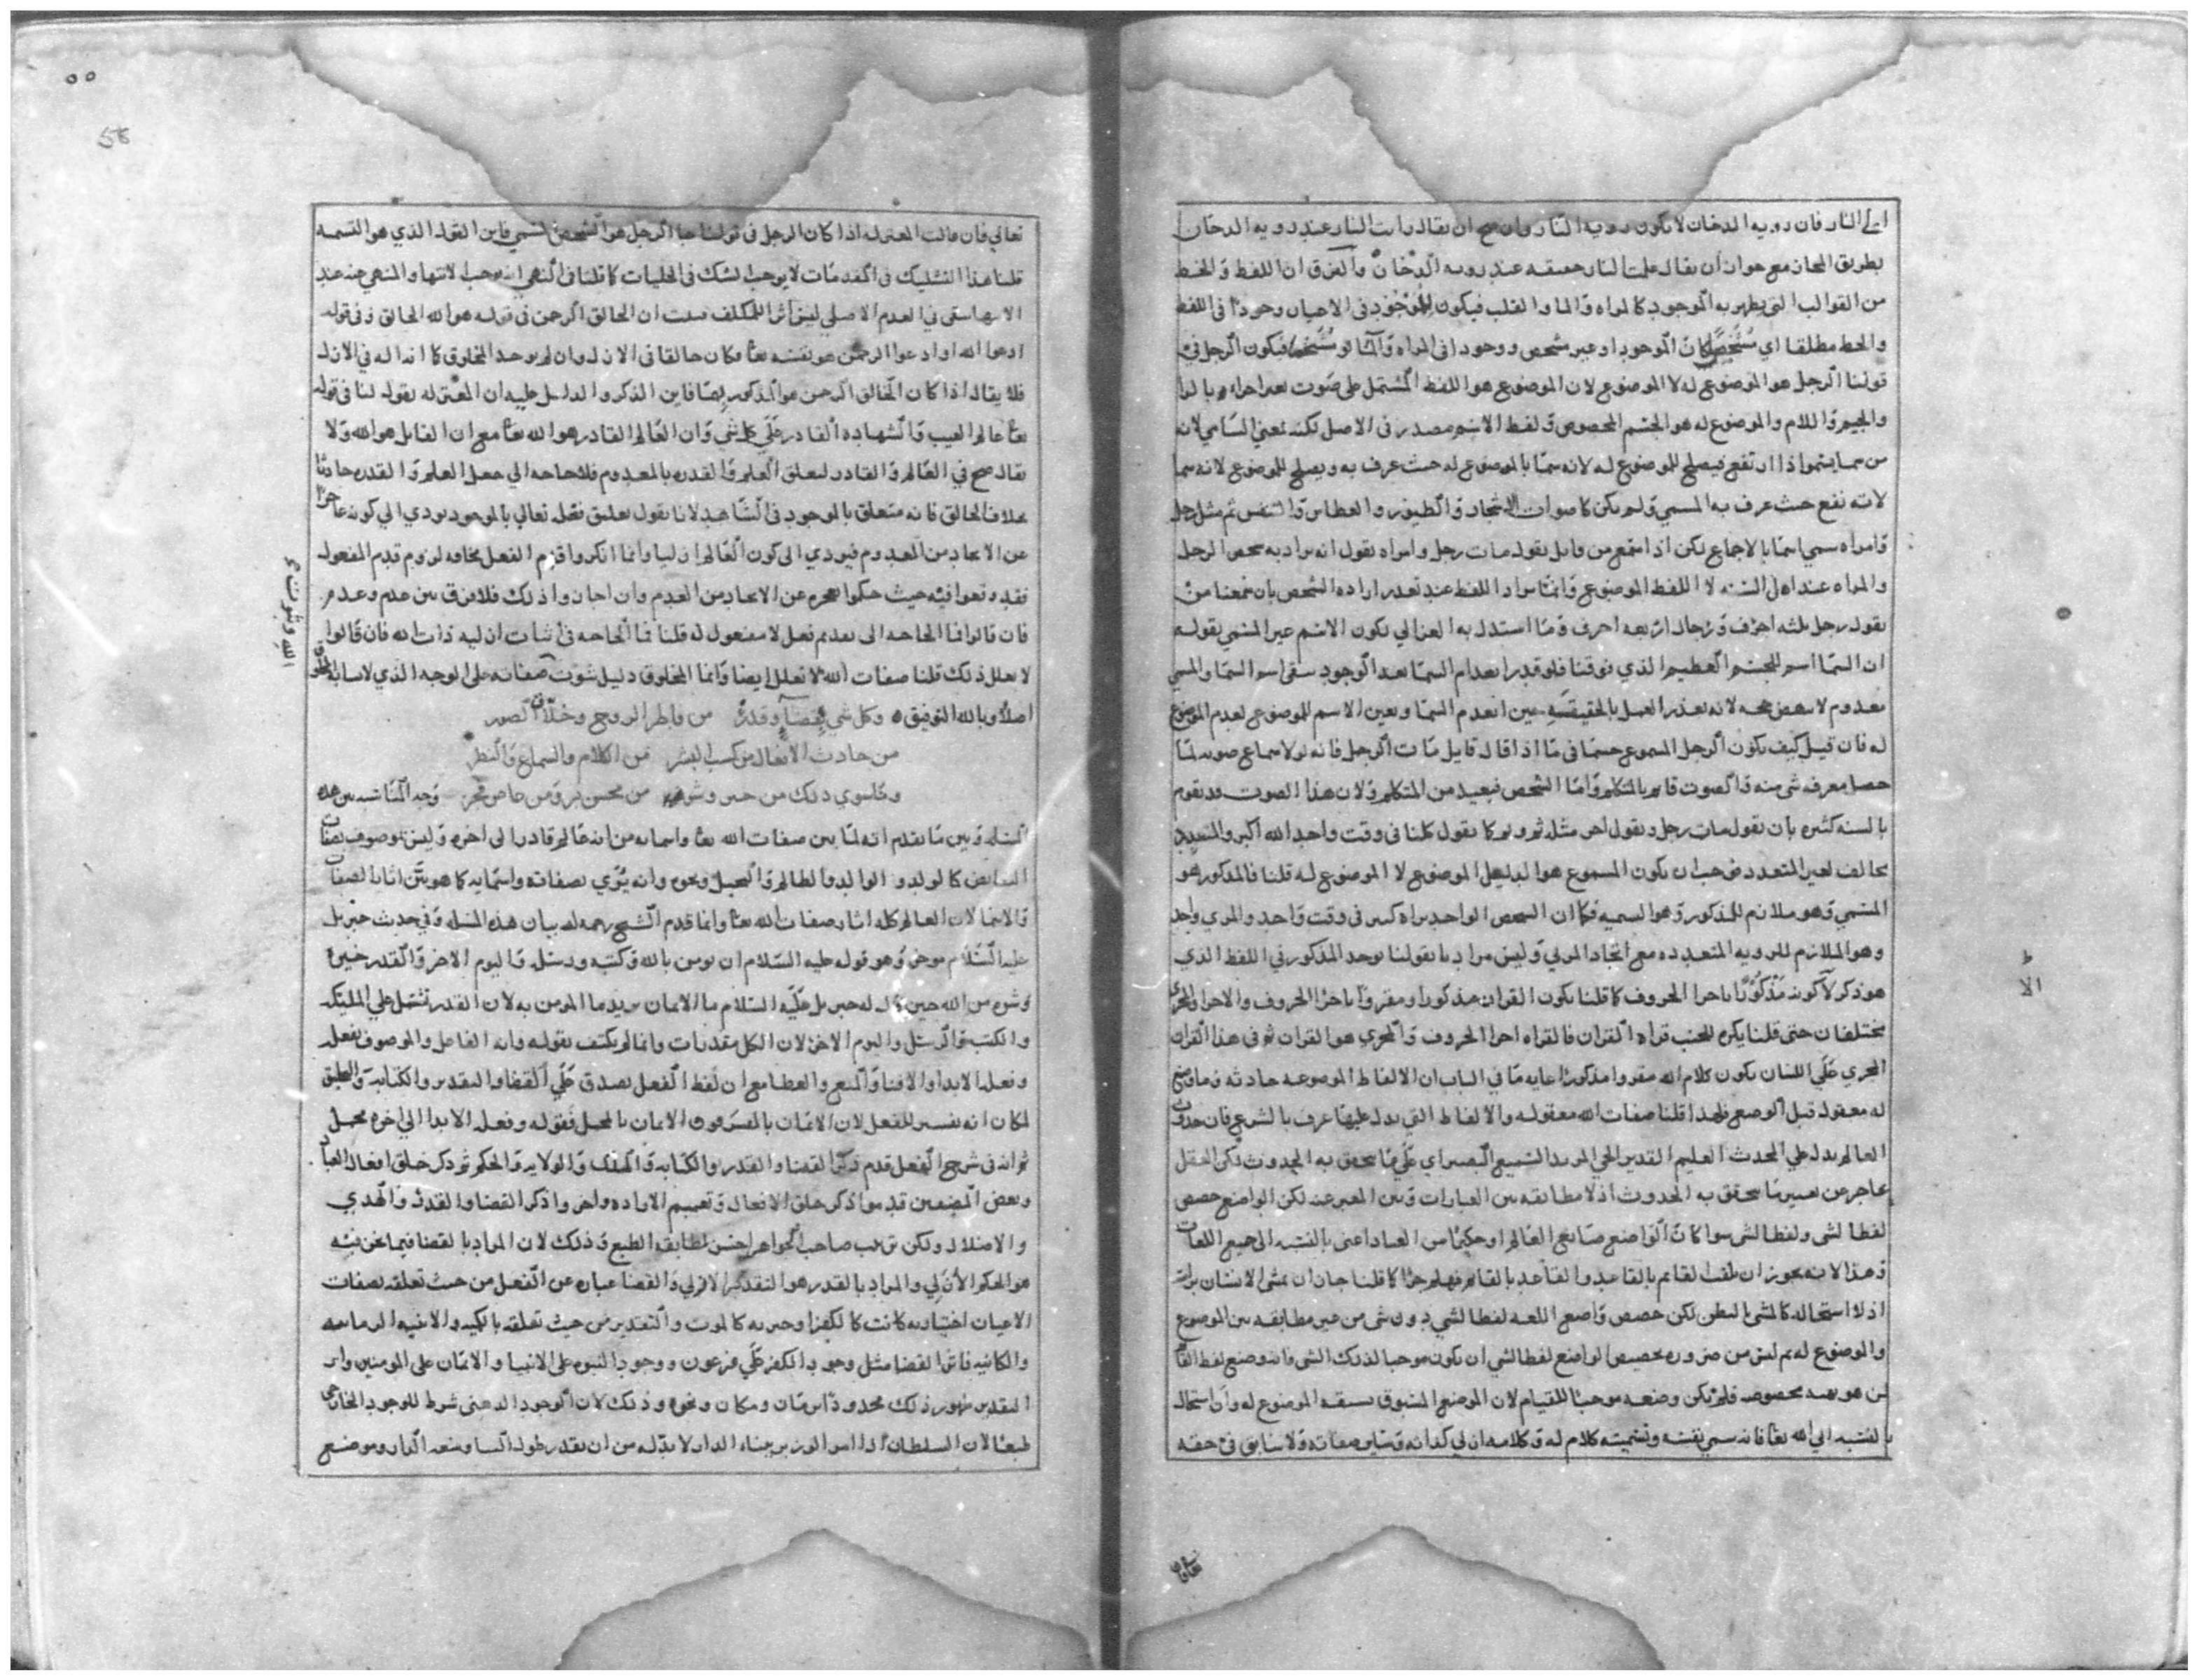 الي النار فان رويه الدخان لا يكون رويه النار وان صح ان يقال رايت النار عند رويه الدخان
بطريق المجاز مع جواز ان يقال علمت النار حقيقه عند رويه الدخان والفرق ان اللفظ والخط
من القوالب التي يظهر به الموجود كالمراه والما والقلب فيكون للموجود في الاحيان وجودا في اللفظ
والخط مطلقا اي الموجود او غير شخص ووجودا في المراه والما لو فيكون الرجل في
قولنا الرجل هو الموضوع له لا الموضوع لان الموضوع هو اللفظ المشتمل على صوت بعد اجراه بالرا
والجيم واللام والموضوع له هو الجسم المخصوص ولفظ الاسم مصدر في الاصل لكنه بمعني السامي لانه
من سما يسموا اذا ارتفع فيصلح للموضوع له لانه سما بالموضوع له حيث عرف به ويصلح للموضوع لانه سما
لانه نفع حيث عرف به المسمي ولم يكن كاصوات الاشجار والطيور والعطاس والتنفس ثم مثل رجل
وامراه سمي اسما بالاجماع لكن اذا استمع من قايل يقول مات رجل وامراه نقول انه يراد به شخص الرجل
والمراه عند اهل السنه لا اللفظ الموضوع وانما يراد اللفظ عند تعذر اراده الشخص بان سمعنا من
يقول رجل ثلثه احرف ورجال اربعه احرف وما استدل به الغزالي لكون الاسم غير المسمي بقوله
ان السما اسم للجسم العظيم الذي فوقنا فلو قدر انعدام السما بعد الوجود بقي اسم السما والمسمي
معدوم لا ينهض حجه لانه تعذر العمل بالحقيقه حين انعدم السما وبعين الاسم للموضوع لعدم الموضوع
له فان قيل كيف يكون الرجل المسموع جسما في ما اذا قال قايل مات الرجل فانه لولا سماع صوته لما
حصل معرفه شي منه والصوت قايم بالمتكلم واما الشخص فبعيد من المتكلم ولان هذا الصوت قد يقوم
بالسنه كثيره بان يقول مات رجل ويقول اخر مثله ثم وثم كما نقول كلنا في وقت واحد الله اكبر والمتعدد
مخالف لغير المتعدد فوجب ان يكون المسموع هو الدليل الموضوع لا الموضوع له قلنا فالمذكور هو
المسمي وهو ملازم للمذكور وهو السميه فكما ان الشخص الواحد يراه كثير في وقت واحد والمري واحد
وهو الملازم للرويه المتعدده مع اتحاد المري وليس مرادنا بقولنا يوجد المذكور في اللفظ الذي
هو ذكر لا كونه مذكورا باجرا الحروف كما قلنا بكون القران مذكورا ومقروا باجرا الحروف والاجرا والمجري
مختلفان حتى قلنا يكره للجنب قراه القران فالقراه اجرا الحروف والمجري هو القران ثم في هذا القران
المجري علي اللسان يكون كلام الله مقروا مذكورا غايه ما في الباب ان الالفاظ الموضوعه حادثه وما وضع
له معقول قبل الوضع فلهذا قلنا صفات الله معقوله والالفاظ التي يدل عليها عرف بالشرع فان حدوث
العالم يدل علي المحدث العليم القدير الحي المريد السميع البصير اي علي ما يتحقق به الحدوث لكن العقل
عاجز عن تعيين ما يتحقق به الحدوث اذ لا مطابقه بين العبارات وبين المعبر عنه لكن الواضع خصص
لفظا لشي ولفظا لشي سوا كان الواضع صانع العالم او حكيما من العباد اعني بالنسبه الى جميع اللغات
وهذا لانه يجوز ان يلقب القايم بالقاعد والقاعد بالقايم فهلم جرا كما قلنا جاز ان يمشي الانسان براسه
اذ لا استحاله كالمشي بالبطن لكن خصص واضع اللغه لفظا لشي دون شي من غير مطابقه بين الموضوع
والموضوع له ثم ليس من ضروره تخصيص الواضع لفظا لشي ان يكون موجبا لذلك الشي فانه وضع لفظ القايم
لمن هو بهيئه مخصوصه فلم يكن وضعه موجبا للقيام لان الموضوع المسبوق يسبقه الموضوع له وان استحال
بالنسبه الي الله تعا فانه سمي نفسه وتسميته كلام له وكلامه ازلي كذاته وساير صفاته ولا سابق في حقه
تعالي فان قالت المعتزله اذا كان الرجل في قولنا جا الرجل هو الشخص المسمي فاين القول الذي هو التسميه
قلنا هذا التشكيك في المقدمات لا يوجب الشك في الجليات كما قلنا في النهي انه يوجب الانتها والمنهي عنه عند
الانتها يبقي في العدم الاصلي ليس اثرا للمكلف فثبت ان الخالق الرحمن في قوله هو الله الخالق وفي قوله
ادعوا الله او ادعوا الرحمن هو نفسه تعا فكان خالقا في الازل وان لم يوجد المخلوق كما انه اله في الازل
فلا يقال اذا كان الخالق الرحمن هو المذكور ايضا فاين الذكر والدليل عليه ان المعتزله يقول لنا في قوله
تعا عالم الغيب والشهاده القادر علي كل شي وان العالم القادر هو الله تعا مع ان القايل هو الله ولا
يقال صح في العالم والقادر لتعلق العلم والقدره بالمعدوم فلا حاجه الي جعل العلم والقدره حادثا
بخلاف الخالق فانه متعلق بالموجود في الشاهد لانا نقول تعليق فعله تعالي بالموجود يودي الي كونه عاجزا
عن الايجاد من العدم فيودي الى كون العالم ازليا وانما انكروا قدم الفعل مخافه لزوم قدم المفعول
فقد وقعوا فيه حيث حكموا بعجزه عن الايجاد من العدم وان اجازوا ذلك فلا فرق بين عدم وعدم
فان قالوا فما الحاجه الى تقديم فعل لا مفعول له قلنا فما الحاجه في اثبات ازليه ذات الله فان قالوا
لا يعلل ذلك قلنا صفات الله لا تعلل ايضا وانما المخلوق دليل ثبوت صفاته على الوجه الذي لا يشابه المخلوق
اصلا وبالله التوفيق ه وكل شي بقضا وقدر من فاطر الروح وخلاق الصور
من حادث الافعال من كسب البشر من الكلام والسماع والنظر
وما سوي ذلك من خير وشر من محسن بر ومن عاص فجر وجه المناسبه بين هذه
المسله وبين ما تقدم انه لما بين صفات الله تعا واسمايه من انه عالم قادر الى اخره وليس بموصوف بصفات
النقايص كالولد والوالد والظالم والبخيل ونحوه وانه يري بصفاته واسمايه كما هو بين اثار الصفات
والاسما لان العالم كله اثار صفات الله تعا وانما قدم الشيخ رحمه الله بيان هذه المسله وفي حديث جبريل
عليه السلام موخر وهو قوله عليه السلام ان تومن بالله وكتبه ورسله واليوم الاخر والقدر خيره
وشره من الله حين قال له جبريل عليه السلام ما الايمان يريد ما المومن به لان القدر يشتمل علي المليكه
والكتب والرسل واليوم الاخر لان الكل مقدرات وانما لم يكتف بقوله وانه الفاعل والموصوف بفعله
وفعله الابدا والافنا والمنع والعطا مع ان لفظ الفعل يصدق علي القضا والتقدير والكتابه والخلق
لمكان انه تفسير للفعل لان الايمان بالمفسر فوق الايمان بالمجمل فقوله وفعله الابدا الي اخره مجمل
ثم انه في شرح الفعل قدم ذكر القضا والقدر والكتابه والملك والولايه والحكم ثم ذكر خلق افعال العباد
وبعض المصنفين قدموا ذكر خلق الافعال وتعميم الاراده واخروا ذكر القضا والقدر والهدي
والاضلال ولكن ترتيب صاحب الجواهر احسن لمطابقه الطبع وذلك لان المراد بالقضا فيما نحن فيه
هو الحكم الازلي والمراد بالقدر هو التقدير الازلي والقضا عباره عن الفعل من حيث تعلقه بصفات
الاعيان اختياريه كانت كالكفر او جبريه كالموت والتقدير من حيث تعلقه بالكميه والابنيه الزمانيه
والمكانيه فاثر القضا مثل وجود الكفر علي فرعون ووجود النبوه على الانبيا والايمان على المومنين واثر
التقدير ظهور ذلك محدودا بزمان ومكان ونحوه وذلك لان الوجود الذهني شرط للوجود الخارجي
طبعا لان السلطان اذا امر الوزير ببناء الدار لا بد له من ان يقدر طول البنا وسعه الدار وموضع
الله وثبوت
٥٥
58
الا
تعالي فان